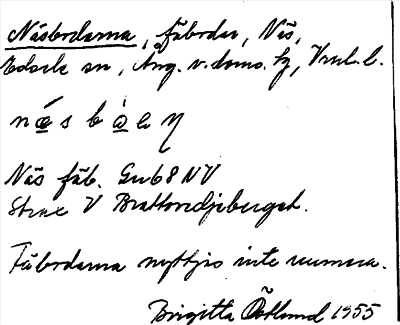 Näsbodarna, fäbodar, Näs,
Edsele sn, Ång. v. doms. tg, Vnrl. l.
Näs fäb. Gub 8 NV
Strax V Brattandjeberget.
Fäbodarna nyttjas inte numera.
Birgitta Östlund 1955